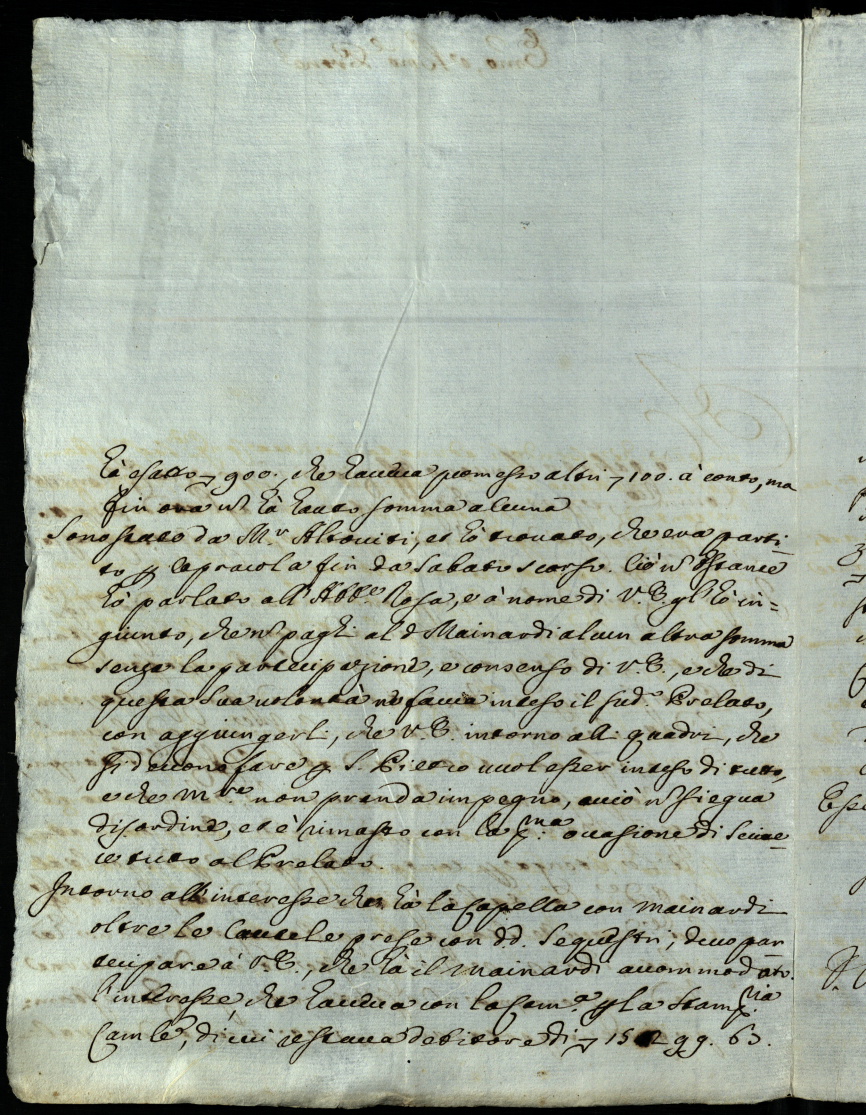 hà esatto 900., che haveva promesso altri 100. à conto, ma
fin ora nō hà hauto somma alcuna
Sono stato da M.r Altoviti, et hò trovato, che era parti-
to p Capracola fin da Sabato scorso. Ciò nō ostante
hò parlato all' Abb.e Rosa, e à nome di V.E. gl' hò in=
giunto, che nō paghi al d Mainardi alcun altra somma
senza la partecipazione, e consenso di V.E., e che di
questa sua volontà nē faccia inteso il sud.o Prelato,
con aggiungerli, che V.E. intorno alli quadri, che
si devono fare p S. Pietro vuol esser inteso di tutto,
e che non prenda impegno, acciò nō siegua
disordine, et è rimasto con la p.ma occasione di scive-
re tutto al Prelato.
Intorno all' interesse che hà la Capella con Mainardi
oltre le cautele prese con dd. Sequestri, devo par
tecipare à V.E., che hà il Mainardi accommodato
l'interesse, che haveva con la Cam.a p la Stamp.ria
Camle, di cui restava debitore di 1512 gg. 63.